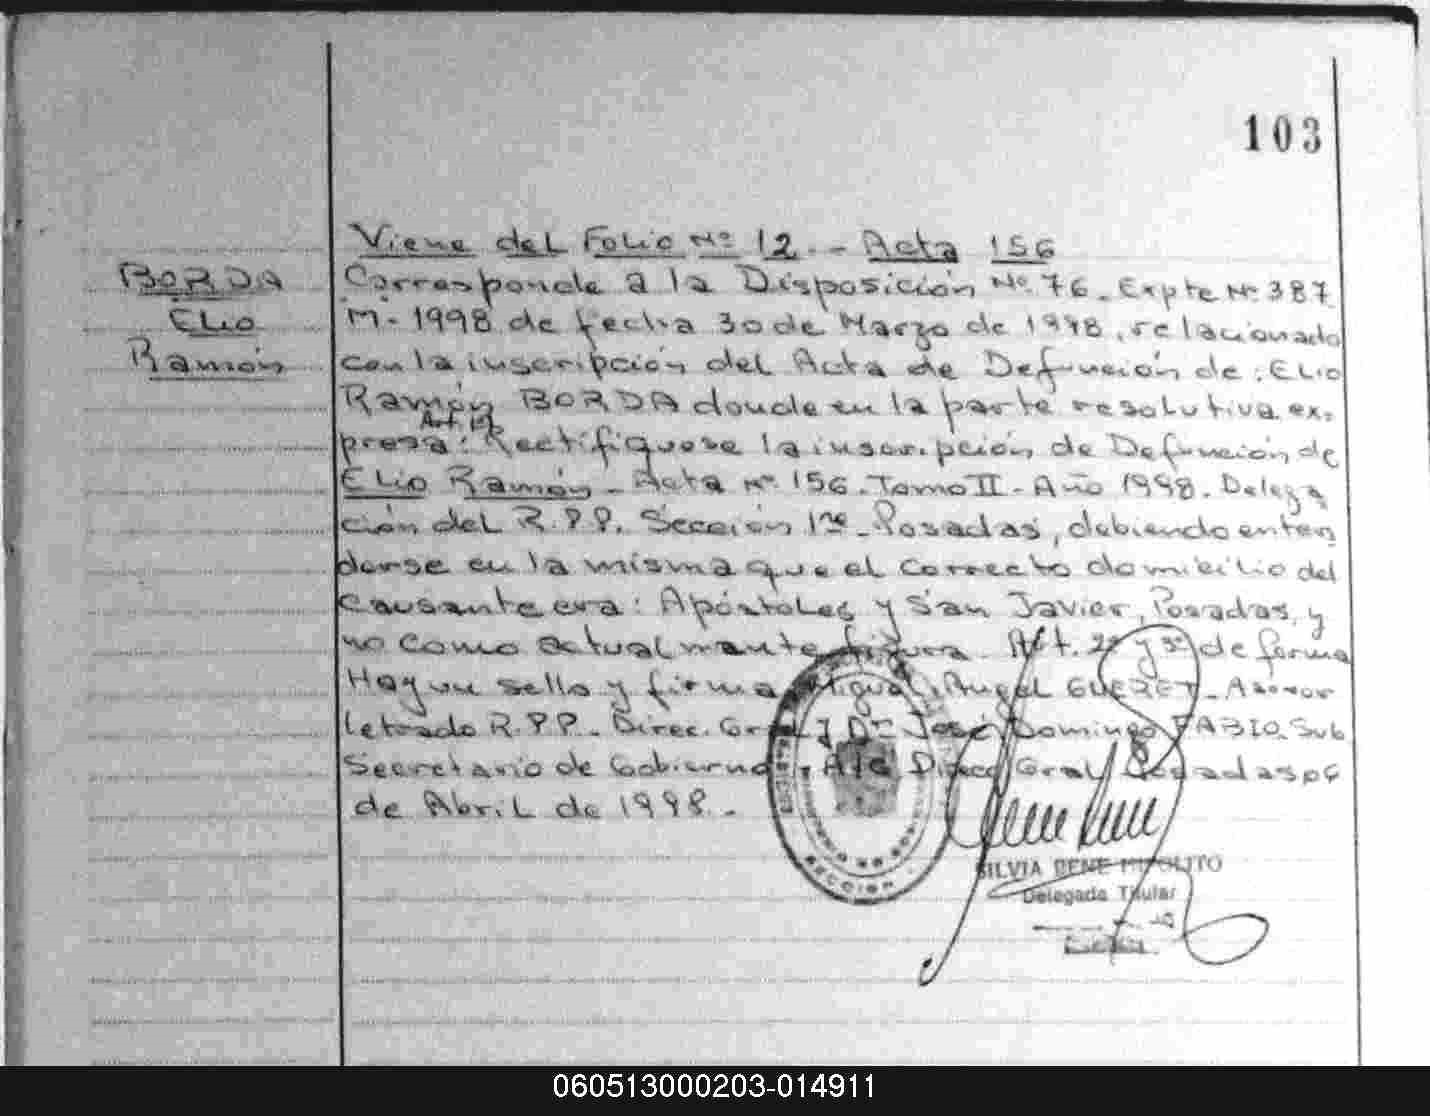 103
Viene del Folio Nº 12.- Acta 156
BORDA
Elio
Ramón
Corresponde a la Disposición Nº 76. Expte Nº 387
M- 1998 de fecha 30 de Marzo de 1998, relacionado
con la inscripción del Acta de Defunción de: Elio
Ramón BORDA donde en la parte resolutiva ex-
Art. 1º
presa: Rectifiquese la inscripción de Defunción de
Elio Ramón - Acta Nº 156. Tomo II - Año 1998. Delega
ción del R.P.P. Sección 1ra - Posadas, debiendo enten
derse en la misma que el correcto domicilio del
Causante era: Apóstoles y San Javier, Posadas, y
no como actualmente figura. Art. 2º y 3º de forma
Hay un sello y firma Miguel Angel GUERET - Asesor
Letrado R.P.P. - Direc. Gral y Dr José Domingo FABIO. Sub
Secretario de Gobierno - A/C Direcc Gral Posadas 06
de Abril de 1998.-
SECCION
SILVIA RENE HIPOLITO
Delegada Titular
060513000203-014911